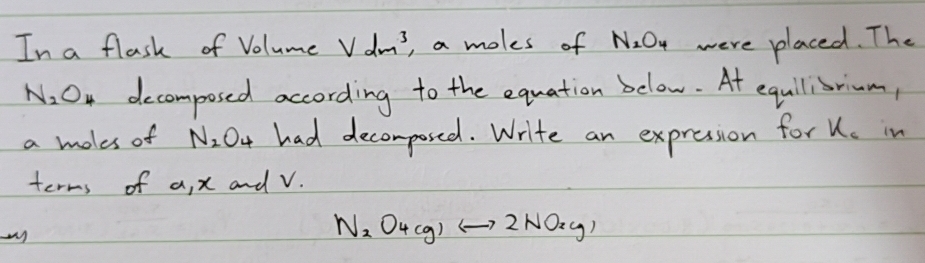 In a flask of Volume V dm³, a moles of N₂O₄ were placed. The
N₂O₄ decomposed according to the equation below. At equilibrium,
a moles of N₂O₄ had decomposed. Write an expression for Kc in
terms of a, x and V.
N₂O₄(g) ⟷ 2NO₂(g)